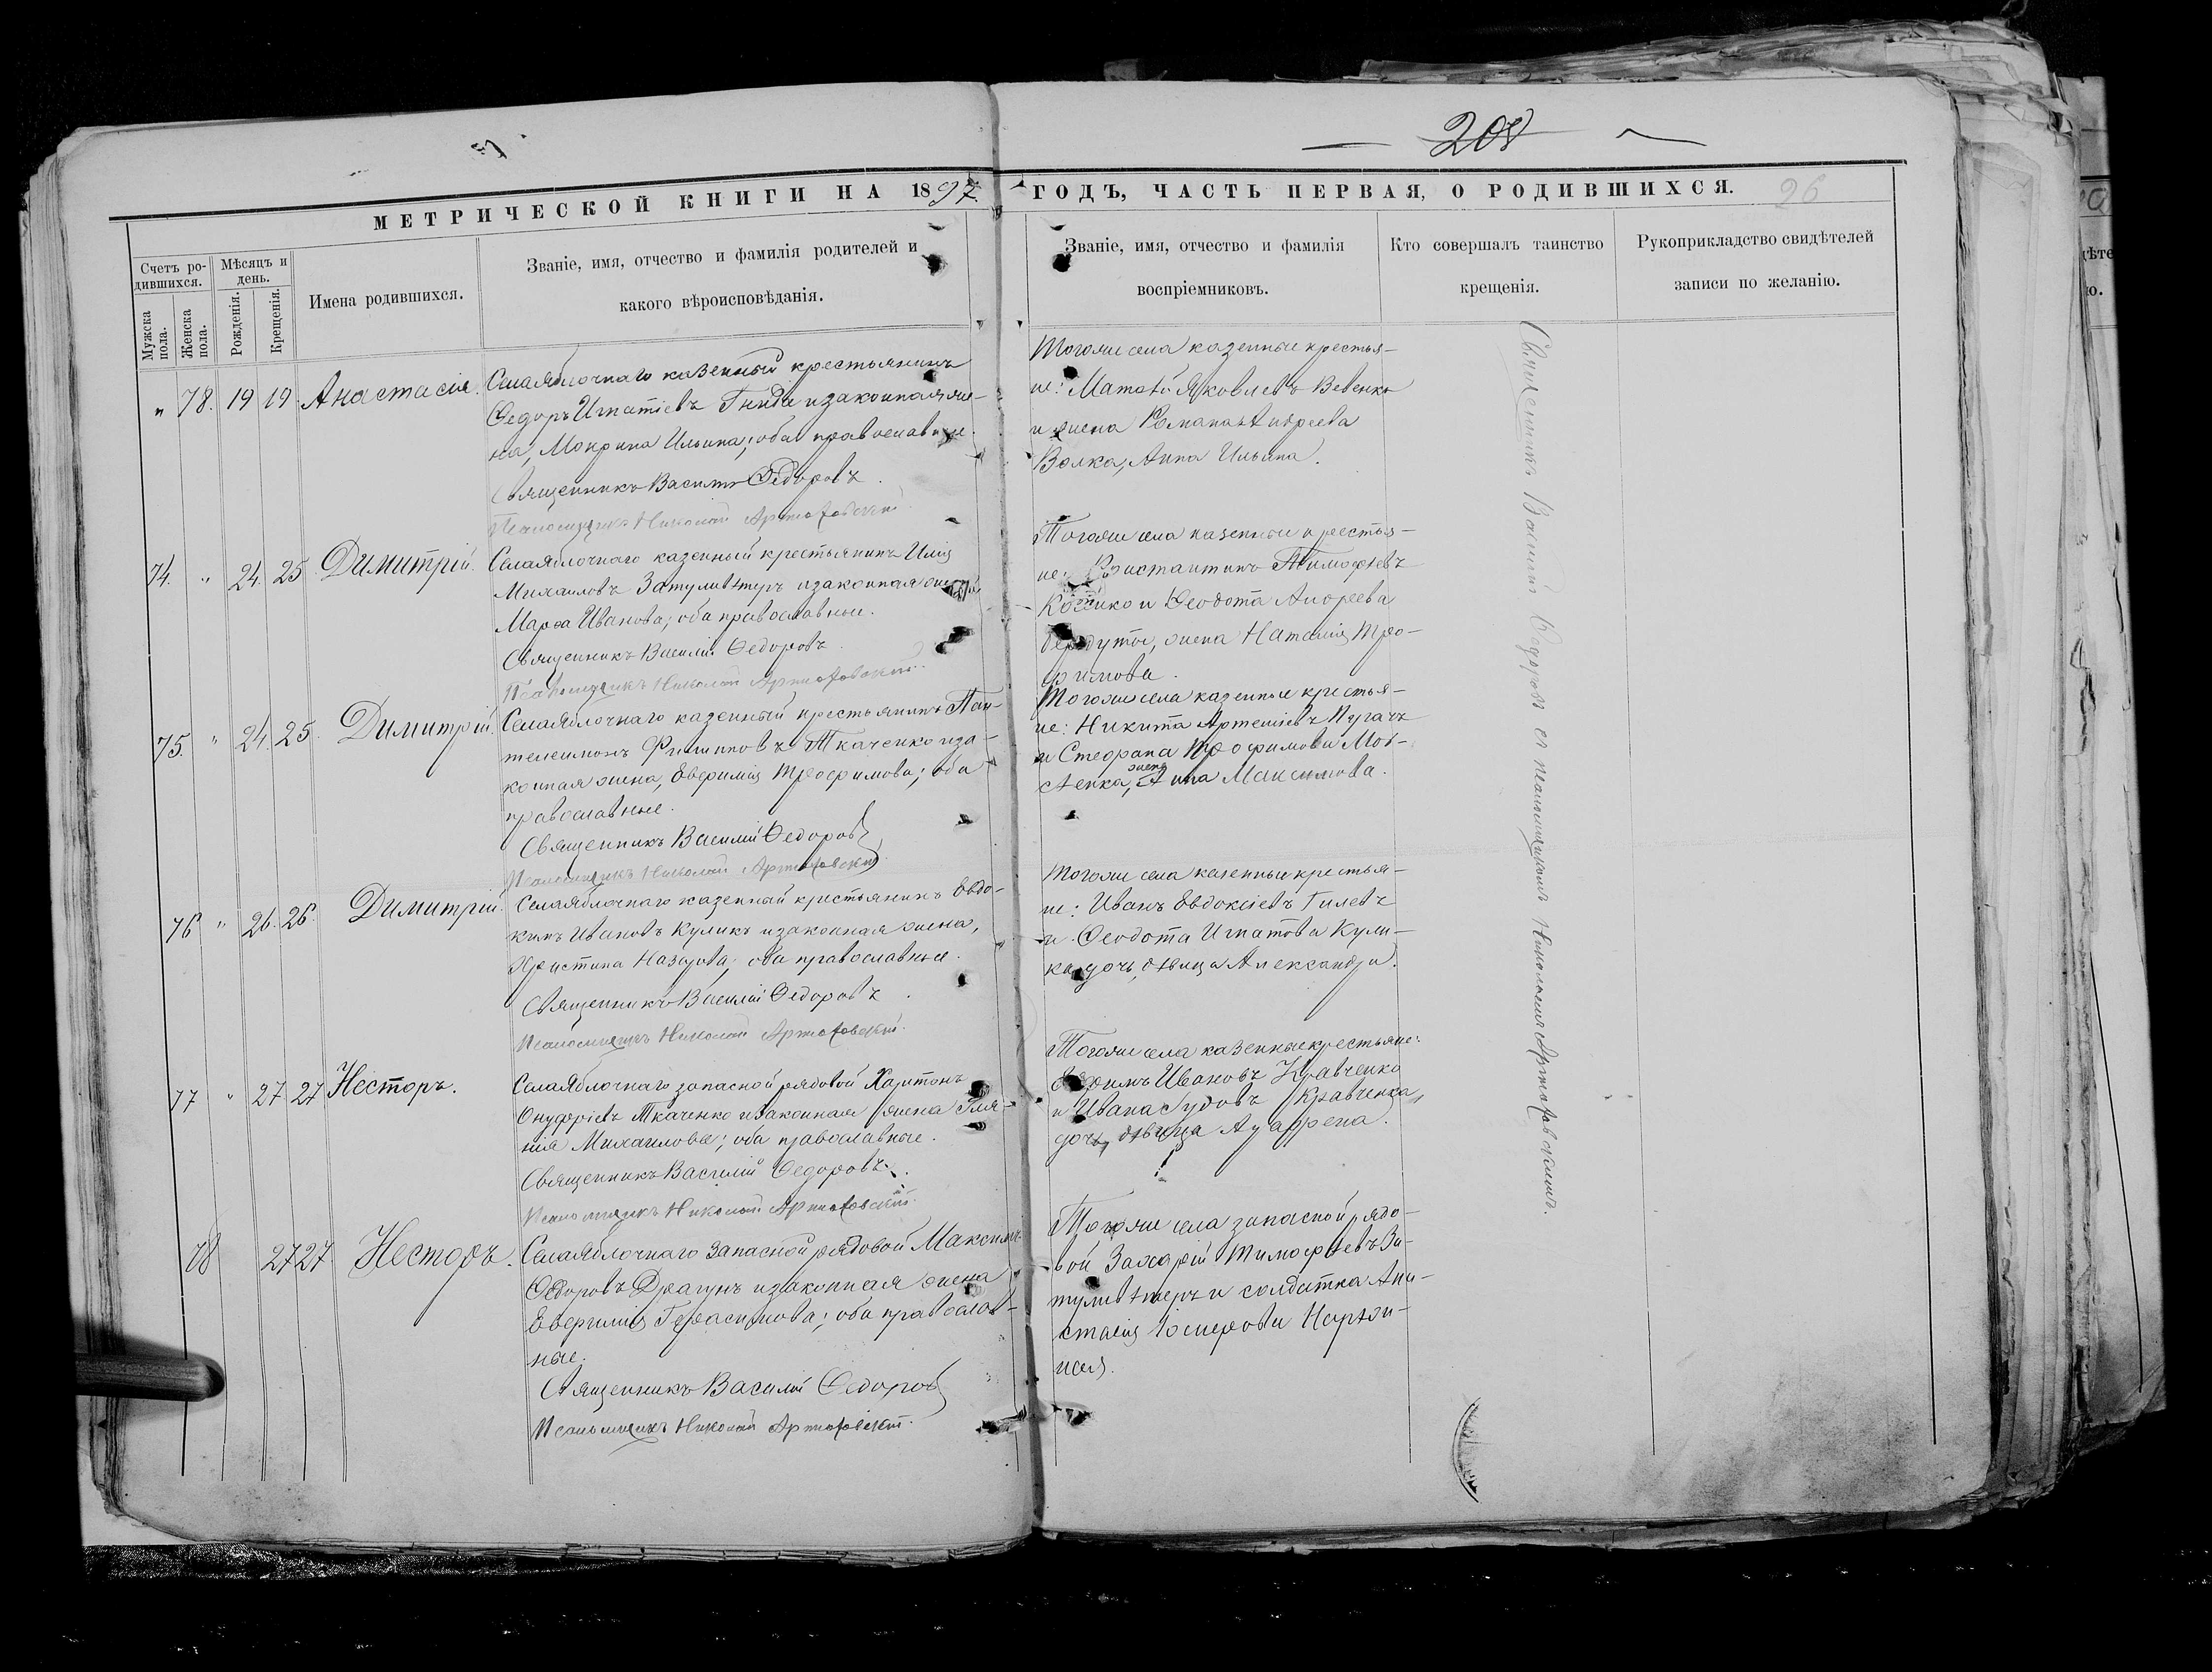 208
МЕТРИЧЕСКОЙ КНИГИ НА 1897 ГОДЪ, ЧАСТЬ ПЕРВАЯ, О РОДИВШИХСЯ.
26
Счетъ ро-
дившихся.
Мужска пола.
Женска пола.
Мѣсяцъ и
день.
Рожденія.
Крещенія.
Имена родившихся.
Званіе, имя, отчество и фамилія родителей и
какого вѣроисповѣданія.
Званіе, имя, отчество и фамилія
воспріемниковъ.
Кто совершалъ таинство
крещенія.
Рукоприкладство свидѣтелей
записи по желанію.
" 78. 19 19. Анастасія.
Села Яблочнаго казенный крестьянинъ
Ѳедоръ Игнатіевъ Гнида и законная же-
на, Мокрина Ильина; оба православные.
Священникъ Василій Ѳедоровъ.
Псаломщикъ Николай Артюховскій.
Тогоже села казенные крестья-
не: Матѳей Яковлевъ Вевенко
и жена Романа Андреева
Волка, Анна Ильина.
74. " 24. 25. Димитрій.
Села Яблочнаго казенный крестьянинъ Илія
Михаиловъ Затуливѣтеръ и законная жена
Марѳа Иванова; оба православные.
Священникъ Василій Ѳедоровъ.
Псаломщикъ Николай Артюховскій.
Тогоже села казенные крестья-
не: Константинъ Тимоѳѣевъ
и Ѳеодота Андреева
жена Наталія Тро-
фимова.
75. " 24. 25. Димитрій.
Села Яблочнаго казенный крестьянинъ Пан-
телеимонъ Филиповъ Ткаченко и за-
конная жена, Евфимія Трофимова; оба
православные.
Священникъ Василій Ѳедоровъ
Псаломщикъ Николай Артюховскій.
Тогоже села казенные крестья-
не: Никита Артеміевъ Пугачъ
и Стефана Трофимова Мов-
жена
Анна Максимова.
76 " 26. 26. Димитрій.
Села Яблочнаго казенный крестьянинъ Евдо-
кимъ Ивановъ Куликъ и законная жена,
Христина Назарова; оба православные.
Священникъ Василій Ѳедоровъ.
Псаломщикъ Николай Артюховскій.
Тогоже села казенные крестья-
не: Иванъ Евдокіевъ Гилевъ
и Ѳеодота Игнатова Кули-
ка дочь, дѣвица Александра.
77 " 27 27 Несторъ.
Села Яблочнаго запасной рядовой Харитонъ
Онуфріевъ Ткаченко и законная жена Гли-
Михаилова; оба православные.
Священникъ Василій Ѳедоровъ.
Псаломщикъ Николай Артюховскій.
Тогоже села казенные крестьяне:
Ивановъ Кравченко
и Ивана Кравченка,
дочь, дѣвица
78 27 27 Несторъ.
Села Яблочнаго запасной рядовой Максимъ
Ѳедоровъ Драгунъ и законная жена
Евфимія Герасимова; оба православ-
ные.
Священникъ Василій Ѳедоровъ
Псаломщикъ Николай Артюховскій.
Тогоже села запасной рядо-
вой Захарій Тимоѳѣевъ За-
туливѣтеръ и солдатка Ана-
стасія Іосифова
Священникъ Василій Ѳедоровъ съ псаломщикомъ Николаемъ Артюховскимъ.